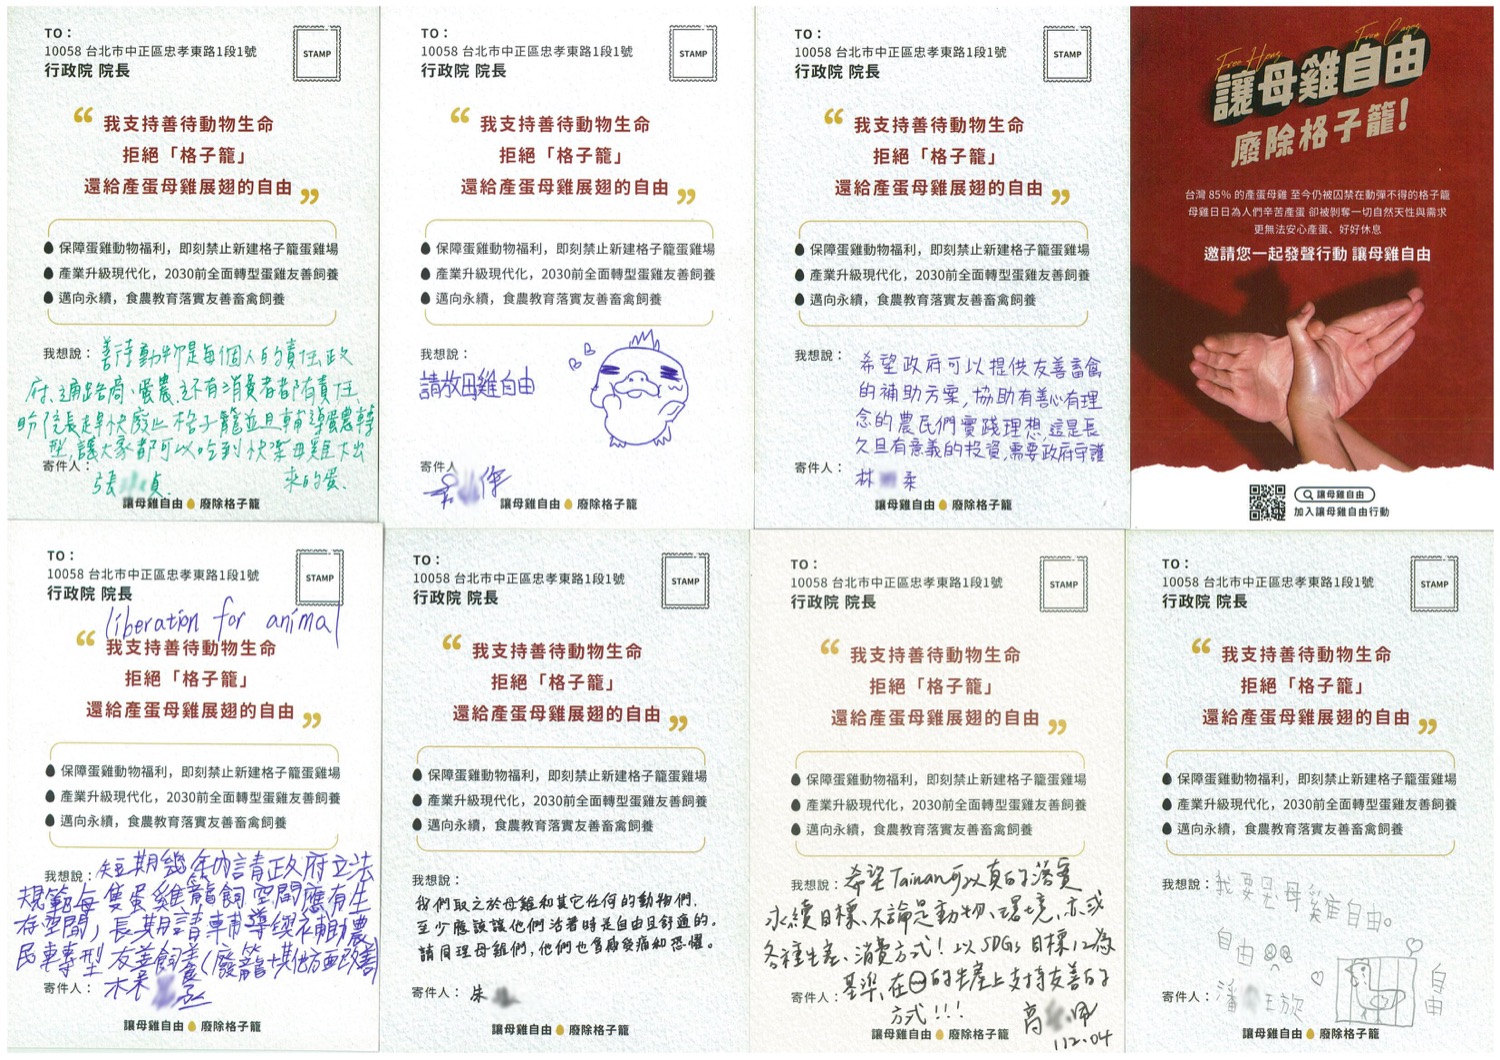 TO：
10058 台北市中正區忠孝東路1段1號
行政院 院長
STAMP
“ 我支持善待動物生命
拒絕「格子籠」
還給產蛋母雞展翅的自由 ”
保障蛋雞動物福利，即刻禁止新建格子籠蛋雞場
產業升級現代化，2030前全面轉型蛋雞友善飼養
邁向永續，食農教育落實友善畜禽飼養
我想說：善待動物是每個人的責任政
府、通路商、蛋農、還有消費者都有責任
盼院長趕快廢止格子籠並且輔導蛋農轉
型，讓大家都可以吃到快樂母雞下出
來的蛋.
寄件人：
張 貞.
讓母雞自由 廢除格子籠
TO：
10058 台北市中正區忠孝東路1段1號
行政院 院長
STAMP
“ 我支持善待動物生命
拒絕「格子籠」
還給產蛋母雞展翅的自由 ”
保障蛋雞動物福利，即刻禁止新建格子籠蛋雞場
產業升級現代化，2030前全面轉型蛋雞友善飼養
邁向永續，食農教育落實友善畜禽飼養
我想說：
請放母雞自由
寄件人
讓母雞自由 廢除格子籠
TO：
10058 台北市中正區忠孝東路1段1號
行政院 院長
STAMP
“ 我支持善待動物生命
拒絕「格子籠」
還給產蛋母雞展翅的自由 ”
保障蛋雞動物福利，即刻禁止新建格子籠蛋雞場
產業升級現代化，2030前全面轉型蛋雞友善飼養
邁向永續，食農教育落實友善畜禽飼養
我想說：希望政府可以提供友善畜禽
的補助方案，協助有善心有理
念的農民們實踐理想，這是長
久且有意義的投資，需要政府守護
寄件人：林 柔
讓母雞自由 廢除格子籠
Free Hens From Cages
讓母雞自由
廢除格子籠！
台灣 85% 的產蛋母雞 至今仍被囚禁在動彈不得的格子籠
母雞日日為人們辛苦產蛋 卻被剝奪一切自然天性與需求
更無法安心產蛋、好好休息
邀請您一起發聲行動 讓母雞自由
讓母雞自由
加入讓母雞自由行動
TO：
10058 台北市中正區忠孝東路1段1號
行政院 院長
STAMP
liberation for animal
“ 我支持善待動物生命
拒絕「格子籠」
還給產蛋母雞展翅的自由 ”
保障蛋雞動物福利，即刻禁止新建格子籠蛋雞場
產業升級現代化，2030前全面轉型蛋雞友善飼養
邁向永續，食農教育落實友善畜禽飼養
我想說：短期幾年內請政府立法
規範每隻蛋雞籠飼空間應有生
存空間，長期請輔導經補助農
民轉型 友善飼養(廢籠+其他方面改善)
寄件人：
讓母雞自由 廢除格子籠
TO：
10058 台北市中正區忠孝東路1段1號
行政院 院長
STAMP
“ 我支持善待動物生命
拒絕「格子籠」
還給產蛋母雞展翅的自由 ”
保障蛋雞動物福利，即刻禁止新建格子籠蛋雞場
產業升級現代化，2030前全面轉型蛋雞友善飼養
邁向永續，食農教育落實友善畜禽飼養
我想說：
我們取之於母雞和其它任何的動物們，
至少應該讓他們活著時是自由且舒適的。
請同理母雞們，他們也會感受痛和恐懼。
寄件人：朱
讓母雞自由 廢除格子籠
TO：
10058 台北市中正區忠孝東路1段1號
行政院 院長
STAMP
“ 我支持善待動物生命
拒絕「格子籠」
還給產蛋母雞展翅的自由 ”
保障蛋雞動物福利，即刻禁止新建格子籠蛋雞場
產業升級現代化，2030前全面轉型蛋雞友善飼養
邁向永續，食農教育落實友善畜禽飼養
我想說：希望Tainan可以真的落實
永續目標、不論是動物、環境、亦或
各種生產、消費方式！以 SDGs 目標12為
基準、在 的生產上支持友善的
方式!!!
寄件人：高
112.04
讓母雞自由 廢除格子籠
TO：
10058 台北市中正區忠孝東路1段1號
行政院 院長
STAMP
“ 我支持善待動物生命
拒絕「格子籠」
還給產蛋母雞展翅的自由 ”
保障蛋雞動物福利，即刻禁止新建格子籠蛋雞場
產業升級現代化，2030前全面轉型蛋雞友善飼養
邁向永續，食農教育落實友善畜禽飼養
我想說：我要 母雞自由。
自由
自由
寄件人：潘
讓母雞自由 廢除格子籠